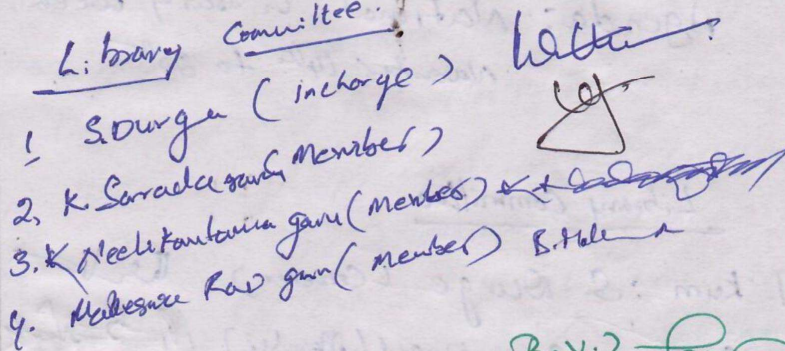 Library Committee.
1 S.Durga (incharge)
2, K. Sarada garu (Member)
3. K Neelikantamma garu (Member)
4. Maheswara Rao garu (Member) B.Mah